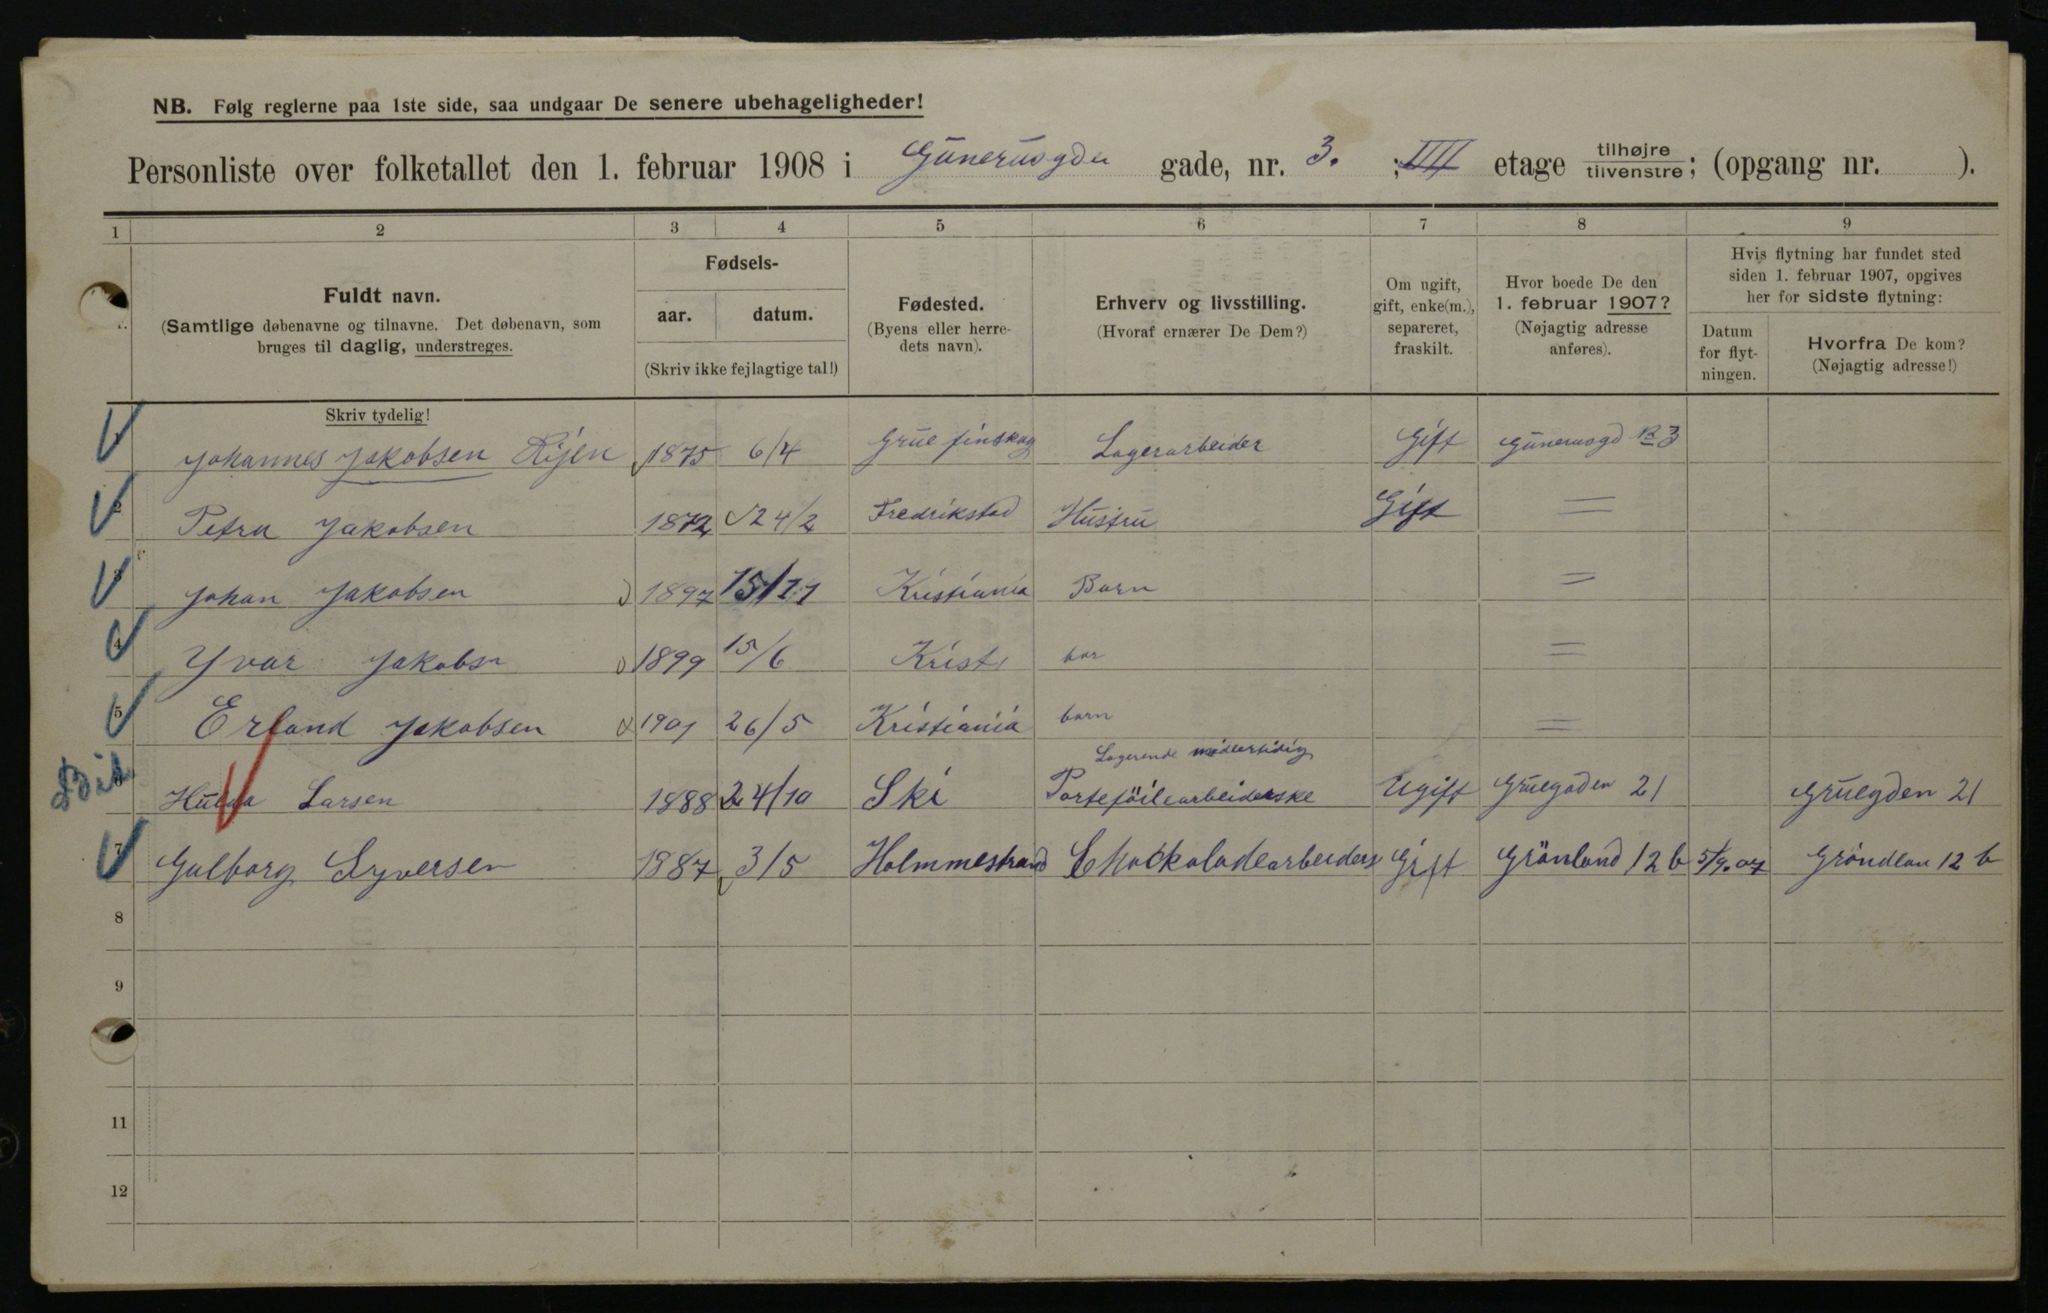 NB. Følg reglerne paa 1ste side, saa undgaar De senere ubehageligheder!
Personliste over folketallet den 1. februar 1908 i Gunerusgden gade, nr. 3. ; IIII etage tilhøjre/tilvenstre; (opgang nr. ).
1 2 3 4 5 6 7 8 9
Fuldt navn.
(Samtlige døbenavne og tilnavne. Det døbenavn, som
bruges til daglig, understreges.
Skriv tydelig!
Fødsels-
aar. datum.
(Skriv ikke fejlagtige tal!)
Fødested.
(Byens eller herre-
dets navn).
Erhverv og livsstilling.
(Hvoraf ernærer De Dem?)
Om ugift,
gift, enke(m.),
separeret,
fraskilt.
Hvor boede De den
1. februar 1907?
(Nøjagtig adresse
anføres).
Hvis flytning har fundet sted
siden 1. februar 1907, opgives
her for sidste flytning:
Datum
for flyt-
ningen.
Hvorfra De kom?
(Nøjagtig adresse!)
Johannes Jakobsen 1875 6/4 Grue finskog Lagerarbeider Gift Gunerusgd No 3
2 Petra Jakobsen 1872 24/2 Fredrikstad Hustru Gift =
3 Johan Jakobsen 1897 15/11 Kristiania Barn =
4 Yvar Jakobsn 1899 15/6 Krist bar =
5 Erland Jakobsen 1901 26/5 Kristiania barn =
Logerende midlertidig
6 Hulda Larsen 1888 24/10 Ski Porteföilearbeiderske Ugift Gruegaden 21 Gruegden 21
7 Gulborg Syversen 1887 3/5 Holmmestrand Chockoladearbeiders Gift Grönland 12 b 5/9.07 Gröndlan 12 b
8
9
11
12